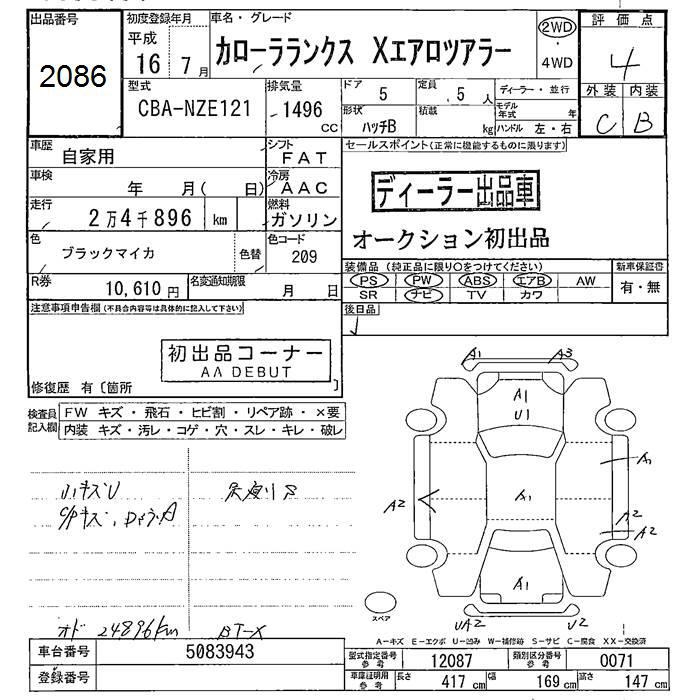 出品番号
2086
初度登録年月
平成
16年 7月
車名・グレード
カローラランクス Xエアロツアラー
2WD
4WD
評価点
4
外装 内装
C B
型式
CBA-NZE121
排気量
1496
CC
ドア
5
定員
5人
ディーラー・並行
形状
ハッチB
積載
kg
モデル年式 年
ハンドル 左・右
車歴
自家用
シフト
FAT
セールスポイント(正常に機能するものに限ります)
車検
年 月( 日)
冷房
AAC
ディーラー出品車
走行
2万4千896 km
燃料
ガソリン
オークション初出品
色
ブラックマイカ
色替
色コード
209
装備品(純正品に限り○をつけてください)
新車保証書
R券
10,610円
名変通知期限
月 日
PS PW ABS エアB AW
SR ナビ TV カワ
有・無
注意事項申告欄(不具合内容等は具体的に記入して下さい)
後日品
初出品コーナー
AA DEBUT
修復歴 有〔箇所 〕
検査員記入欄
FW キズ・飛石・ヒビ割・リペア跡・×要
内装 キズ・汚レ・コゲ・穴・スレ・キレ・破レ
A1 A3
A1
U1
A1
A2
A1
A2
A2
A1
UA2 U2
スペア
オド 24896km
BT-X
A-キズ E-エクボ U-凹み W-補修跡 S-サビ C-腐食 XX-交換済
車台番号
5083943
登録番号
型式指定番号 参考
12087
類別区分番号 参考
0071
車庫証明用 参考
長さ 417cm
幅 169cm
高さ 147cm